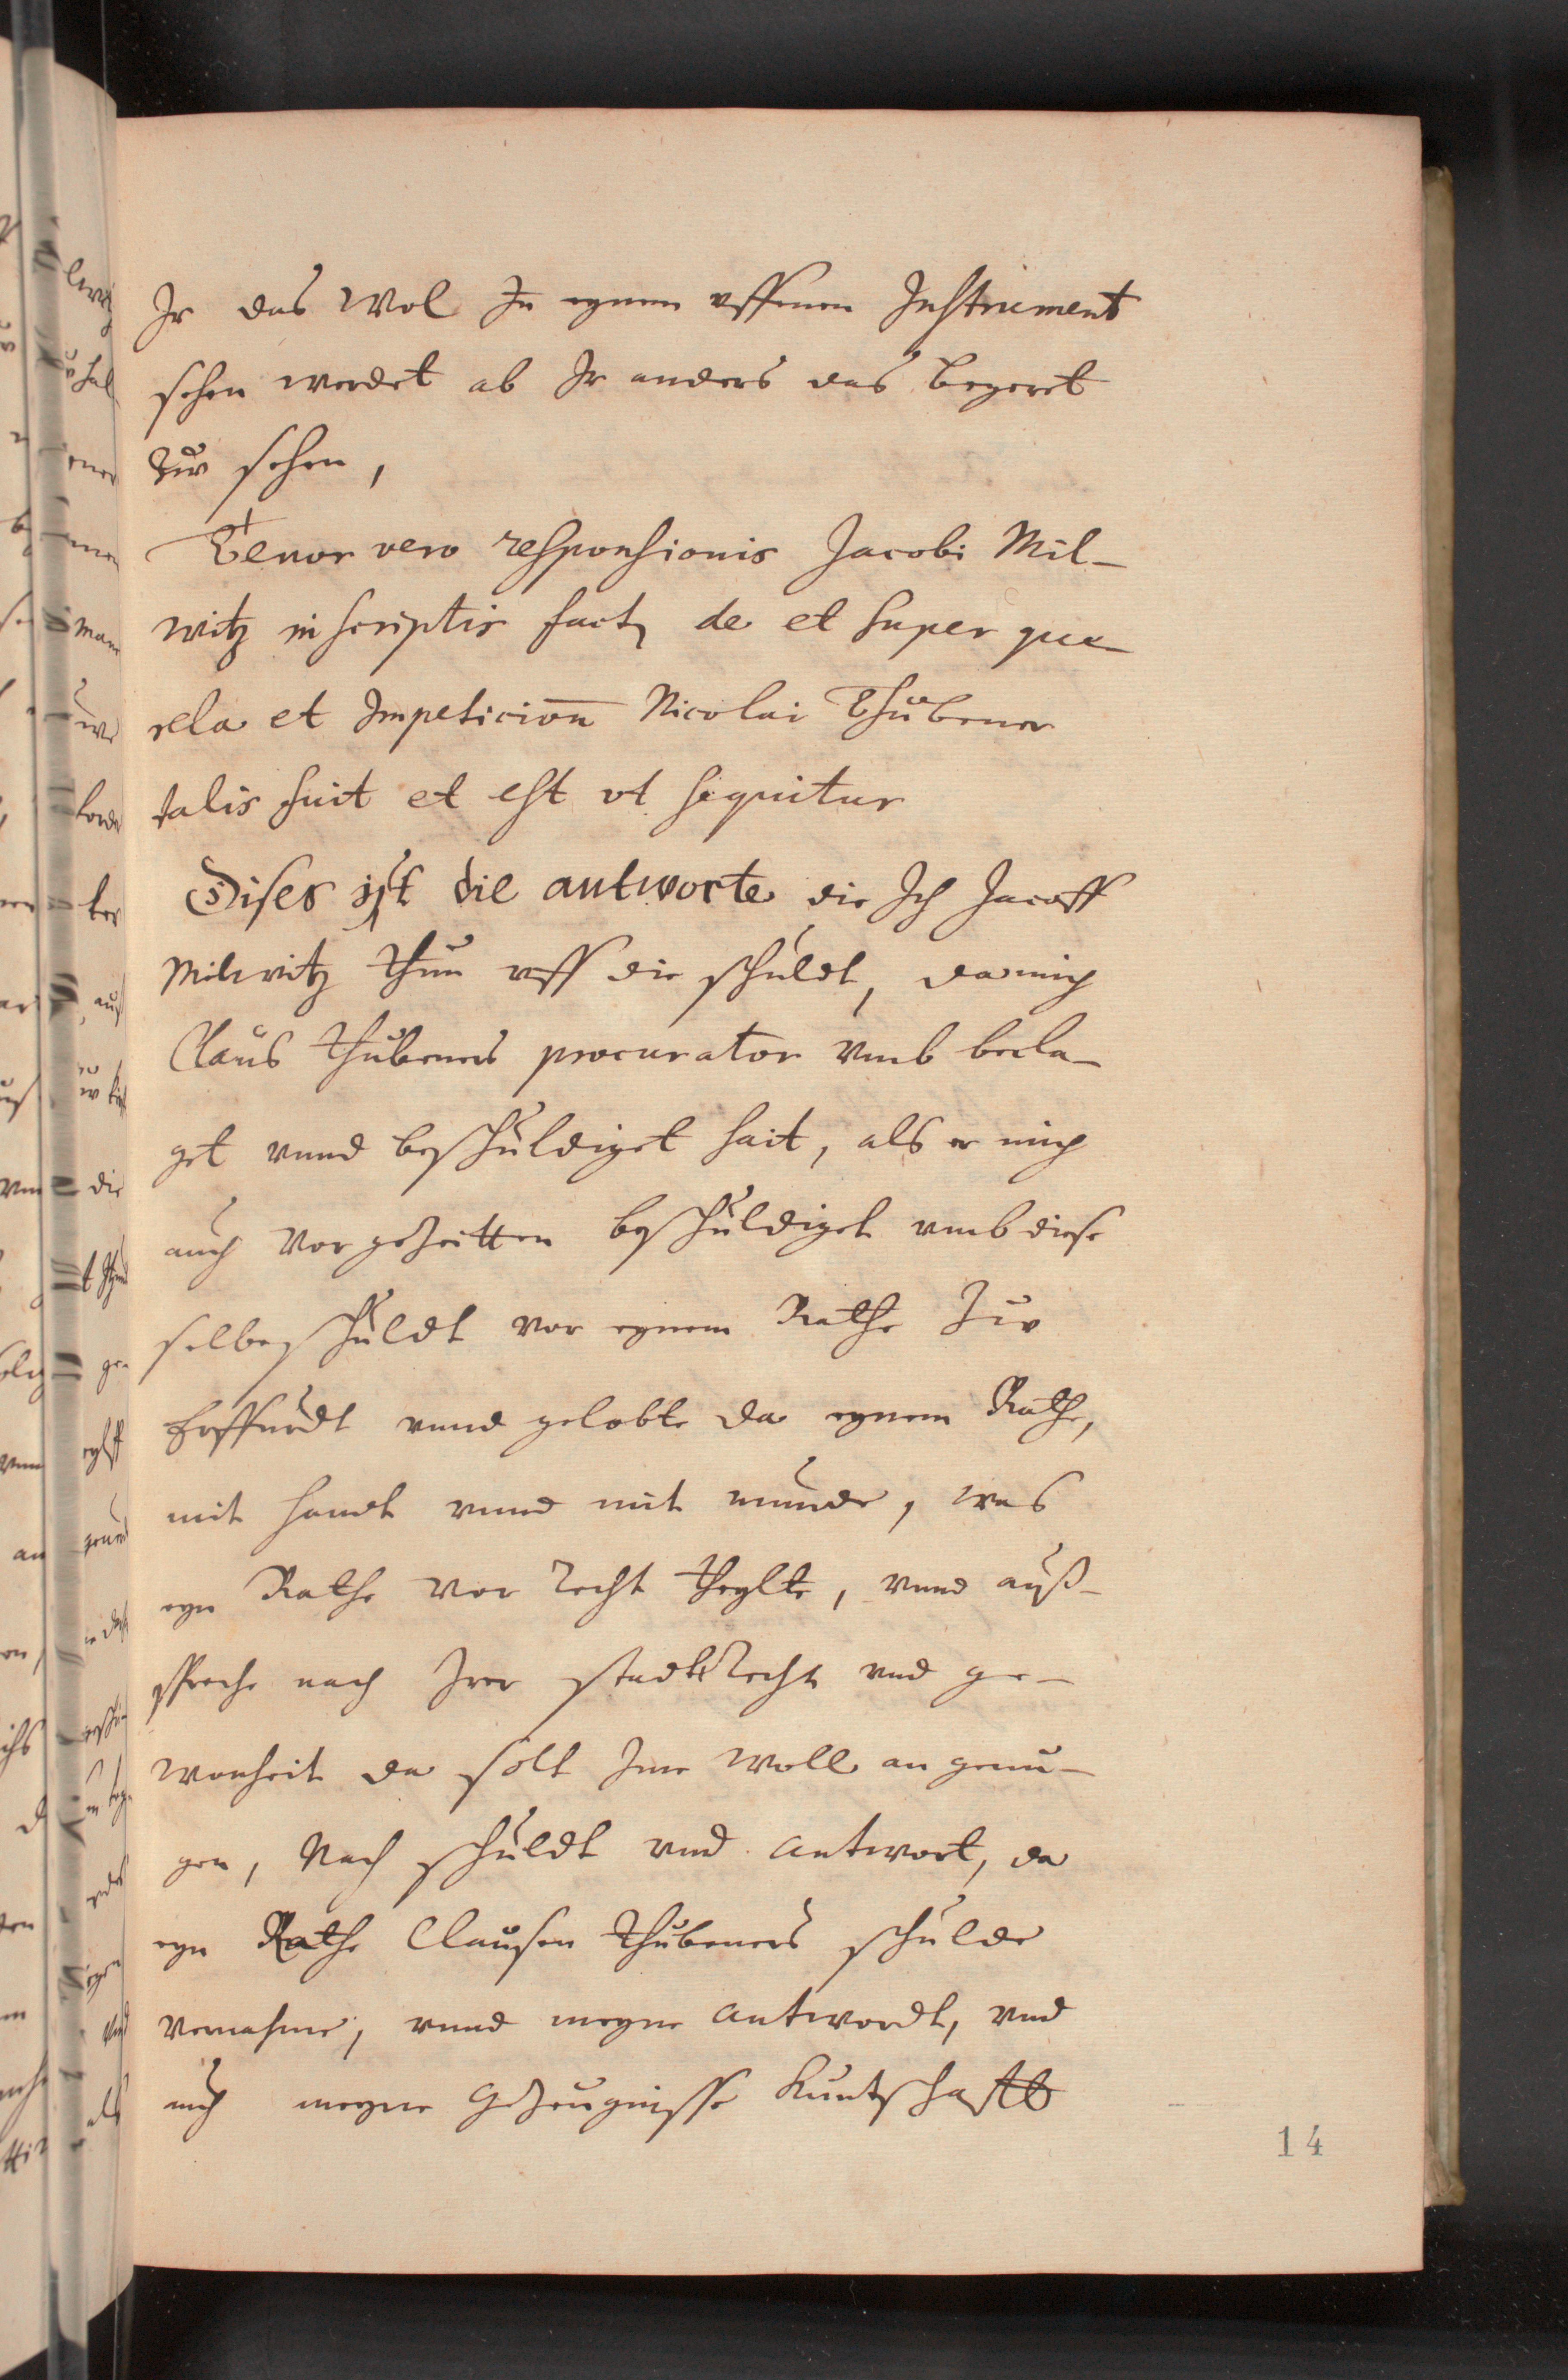 Ir das wol In eynem uffenen Instrument
sehen werdet ab Ir anders das begeret
zuw sehen,
Tenor vero responsionis Jacobi Mil-
witz in scriptis fact de et super que-
rela et Impeticion Nicolai Thubener
talis fuit et est vt sequitur
Dises ist die antworte die Ich Jacoff
Milwitz thun uff die schuldt, da mich
Claus Thubeners procurator vmb becla-
get vnnd beschuldiget hait, als er mich
auch vor gezeitten beschuldiget vmb diese
selbe schuldt vor eynem Rathe zuw
Erffurdt vnnd gelobte da eynem Rathe,
mit handt vnnd mit munde, was
eyn Rathe vor recht theylte, vnnd auß-
spreche nach Irer stadtrecht vnd ge-
wonheit da solt Ime woll an genu-
gen, Nach schuldt vnd antwort, da
eyn Rathe Clausen Thubeners schulde
vernahme, vnnd meyne antwordt, vnd
auch meyne gezeugnisse kuntschafft
14